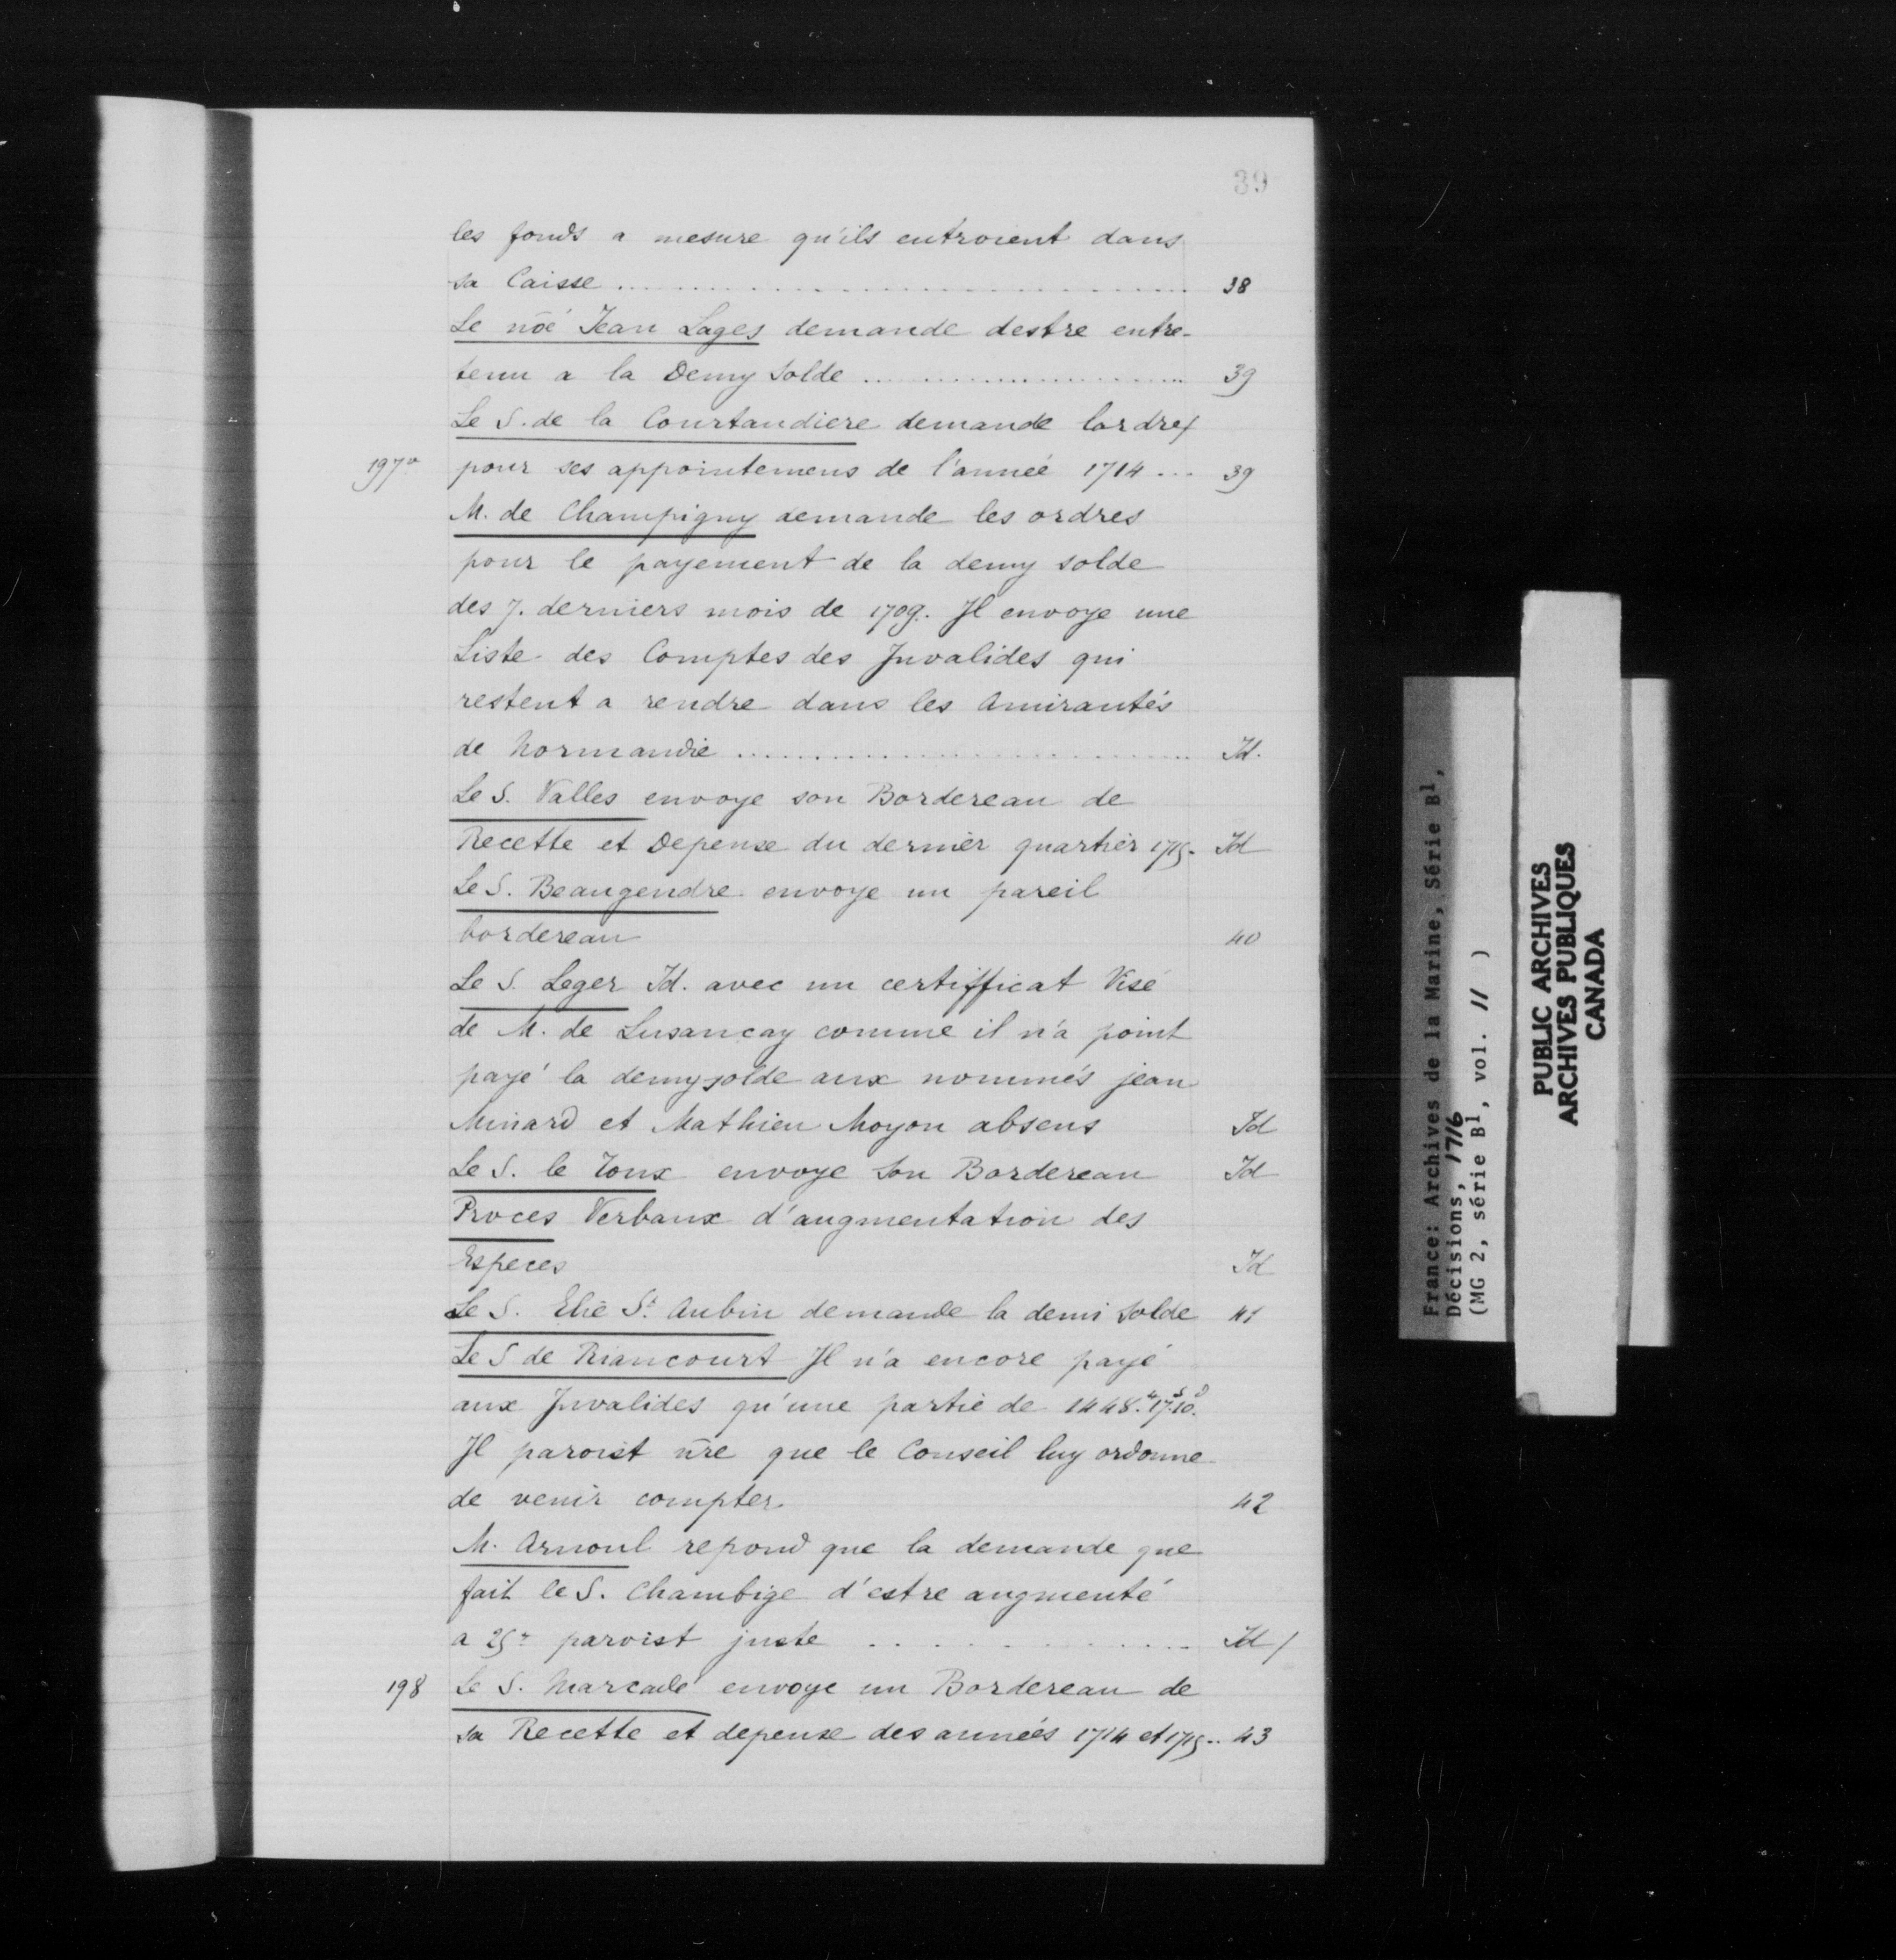 39
les fonds a mesure qu'ils entroient dans
sa Caisse .......... 38
Le nōé Jean Lages demande destre entre-
tenu a la Demy Solde .......... 39
Le S. de la Courtaudiere demande lordre
197v pour ses appointemens de l'anneé 1714 ... 39
M. de Champigny demande les ordres
pour le payement de la demy solde
des 7. derniers mois de 1709. Il envoye une
Liste des Comptes des Invalides qui
restent a rendre dans les Amirautés
de Normandie .......... Id.
Le S. Valles envoye son Bordereau de
Recette et Depense du dernier quartier 1715. Id
Le S. Beaugendre envoye un pareil
bordereau 40
Le S. Leger Id. avec un certifficat Visé
de M. de Lusancay comme il n'a point
payé la demy solde aux nommés jean
Minard et Mathieu Moyon absens Id
Le S. le Toux envoye Son Bordereau Id
Proces Verbaux d'augmentation des
Especes Id
Le S. Elie St. Aubin demande la demi Solde 41
Le S de Riancourt Il n'a encore payé
aux Invalides qu'une partie de 1448.# 17.s 10.d
Il paroist n̄re que le Conseil luy ordonne
de venir compter 42
M. Arnoul repond que la demande que
fait le S. Chambige d'estre augmenté
a 25# paroist juste .......... Id /
198 Le S. Marcadé envoye un Bordereau de
sa Recette et depense des anneés 1714 et 1715.. 43
France: Archives de la Marine, Série B1,
Décisions, 1716
(MG 2, série B1, vol. 11 )
PUBLIC ARCHIVES
ARCHIVES PUBLIQUES
CANADA